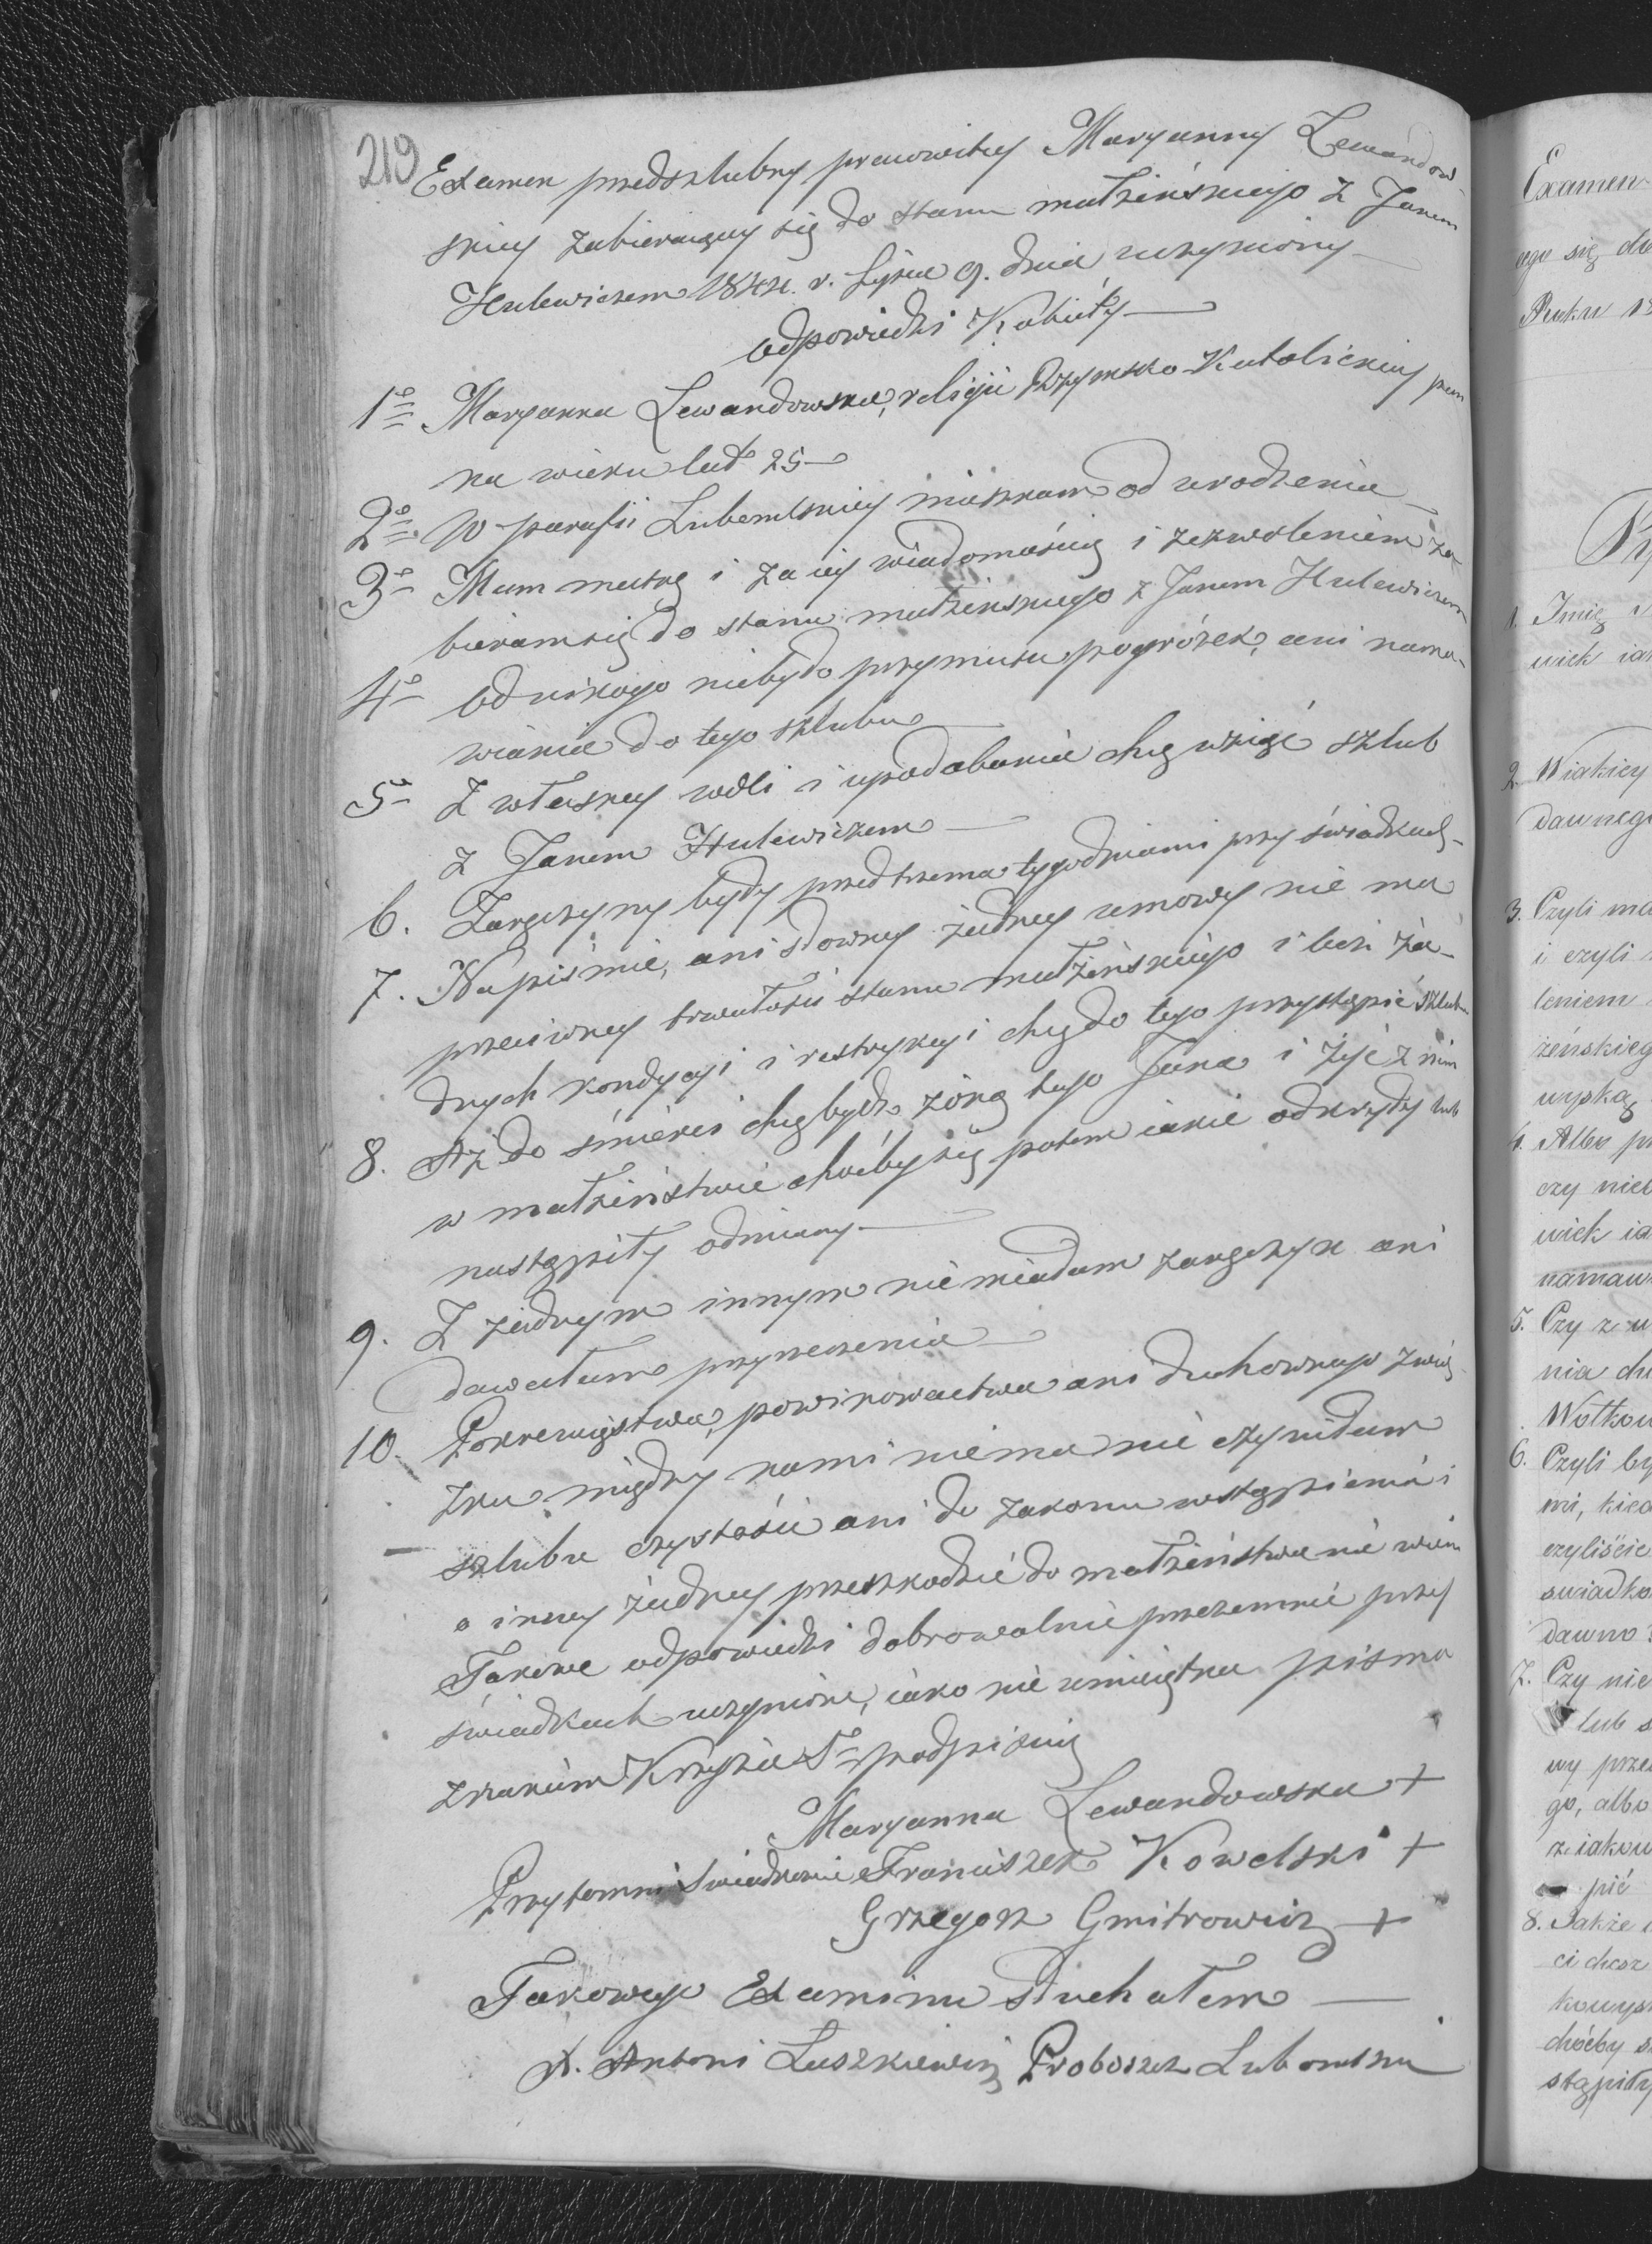 219
Examen przedszlubny pracowitey Maryanny Lewandow-
skiey zabieraiącey się do stanu małżeńskiego z Janem
Hulewiczem 1844. r. Lipca 9. dnia uczyniony
Odpowiedzi Kobiéty
1o Maryanna Lewandowska, religii Rzymsko Katolickiey pan
na wieku lat 25
2o W parafii Lubomlskiey mieszkam od urodzenia
3o Mam matkę i za iey wiadomością i zezwoleniem za-
bieram się do stanu małżeńskiego z Janem Hulewiczem
4o Od nikogo niebyło przymusu, pogróżek, ani nama-
wiania do tego szlubu
5o Z własney woli i upodobania chcę wziąć szlub
z Janem Hulewiczem
6. Zaręczyny były przed trzema tygodniami przy świadkach
7. Na piśmie, ani słowney żadney umowy nie ma
przeciwney trwałości stanu małżeńskiego i bez ża-
dnych kondycyi i restrykcyi chcę do tego przystąpić szlubu
8. Aż do śmierci chcę bydź żoną tego Jana i żyć z nim
w małżeństwie choćby się potem iakie odkryły lub
nastąpiły odmiany
9. Z żadnym innym nie miałam zaręczyn ani
dawałam przyrzeczenia
10. Pokrewięstwa, powinowactwa ani duchownego zwią-
zku między nami niema nie czyniłam
szlubu czystości ani do zakonu wstąpienia i
o inney żadney przeszkodzie do małżeństwa nie wiem
Takowe odpowiedzi dobrowolnie przezemnie przy
świadkach uczynione, iako nie umieiętna pisma
znakiem Krzyża So podpisuię
Maryanna Lewandowska +
Przytomni Swiadkowie Franciszek Kowelski +
Grzegorz Gmitrowicz +
Takowego Examinu Słuchałem
X. Antoni Luszkiewicz Proboszcz Lubomlski
Examen
ego się do
Roku 18
1. Imię
wiek iak
2. Wiakiey
dawnego
3. Czyli ma
i czyli
leniem
żeńskieg
wyską
4. Albo pr
czy nieb
wiek ia
namaw
5. Czy z w
nia ch
Wołkow
6. Czyli by
mi, kied
czyliście
swiadko
dawno
7. Czy nie
lub s
wy prze
go, albo
z iakow
pić
8. Także
ci chcsz
choćby s
stąpiły